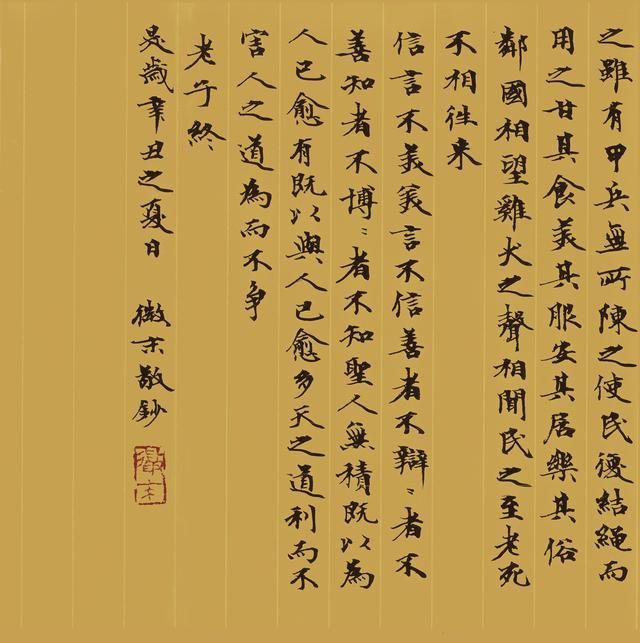 之雖有甲兵無所陳之使民復結繩而
用之甘其食美其服安其居樂其俗
鄰國相望雞犬之聲相聞民之至老死
不相往来
信言不美美言不信善者不辯：者不
善知者不博：者不知聖人無積既以為
人已愈有既以與人已愈多天之道利而不
害人之道為而不争
老子終
是歲辛丑之夏日 微 敬鈔